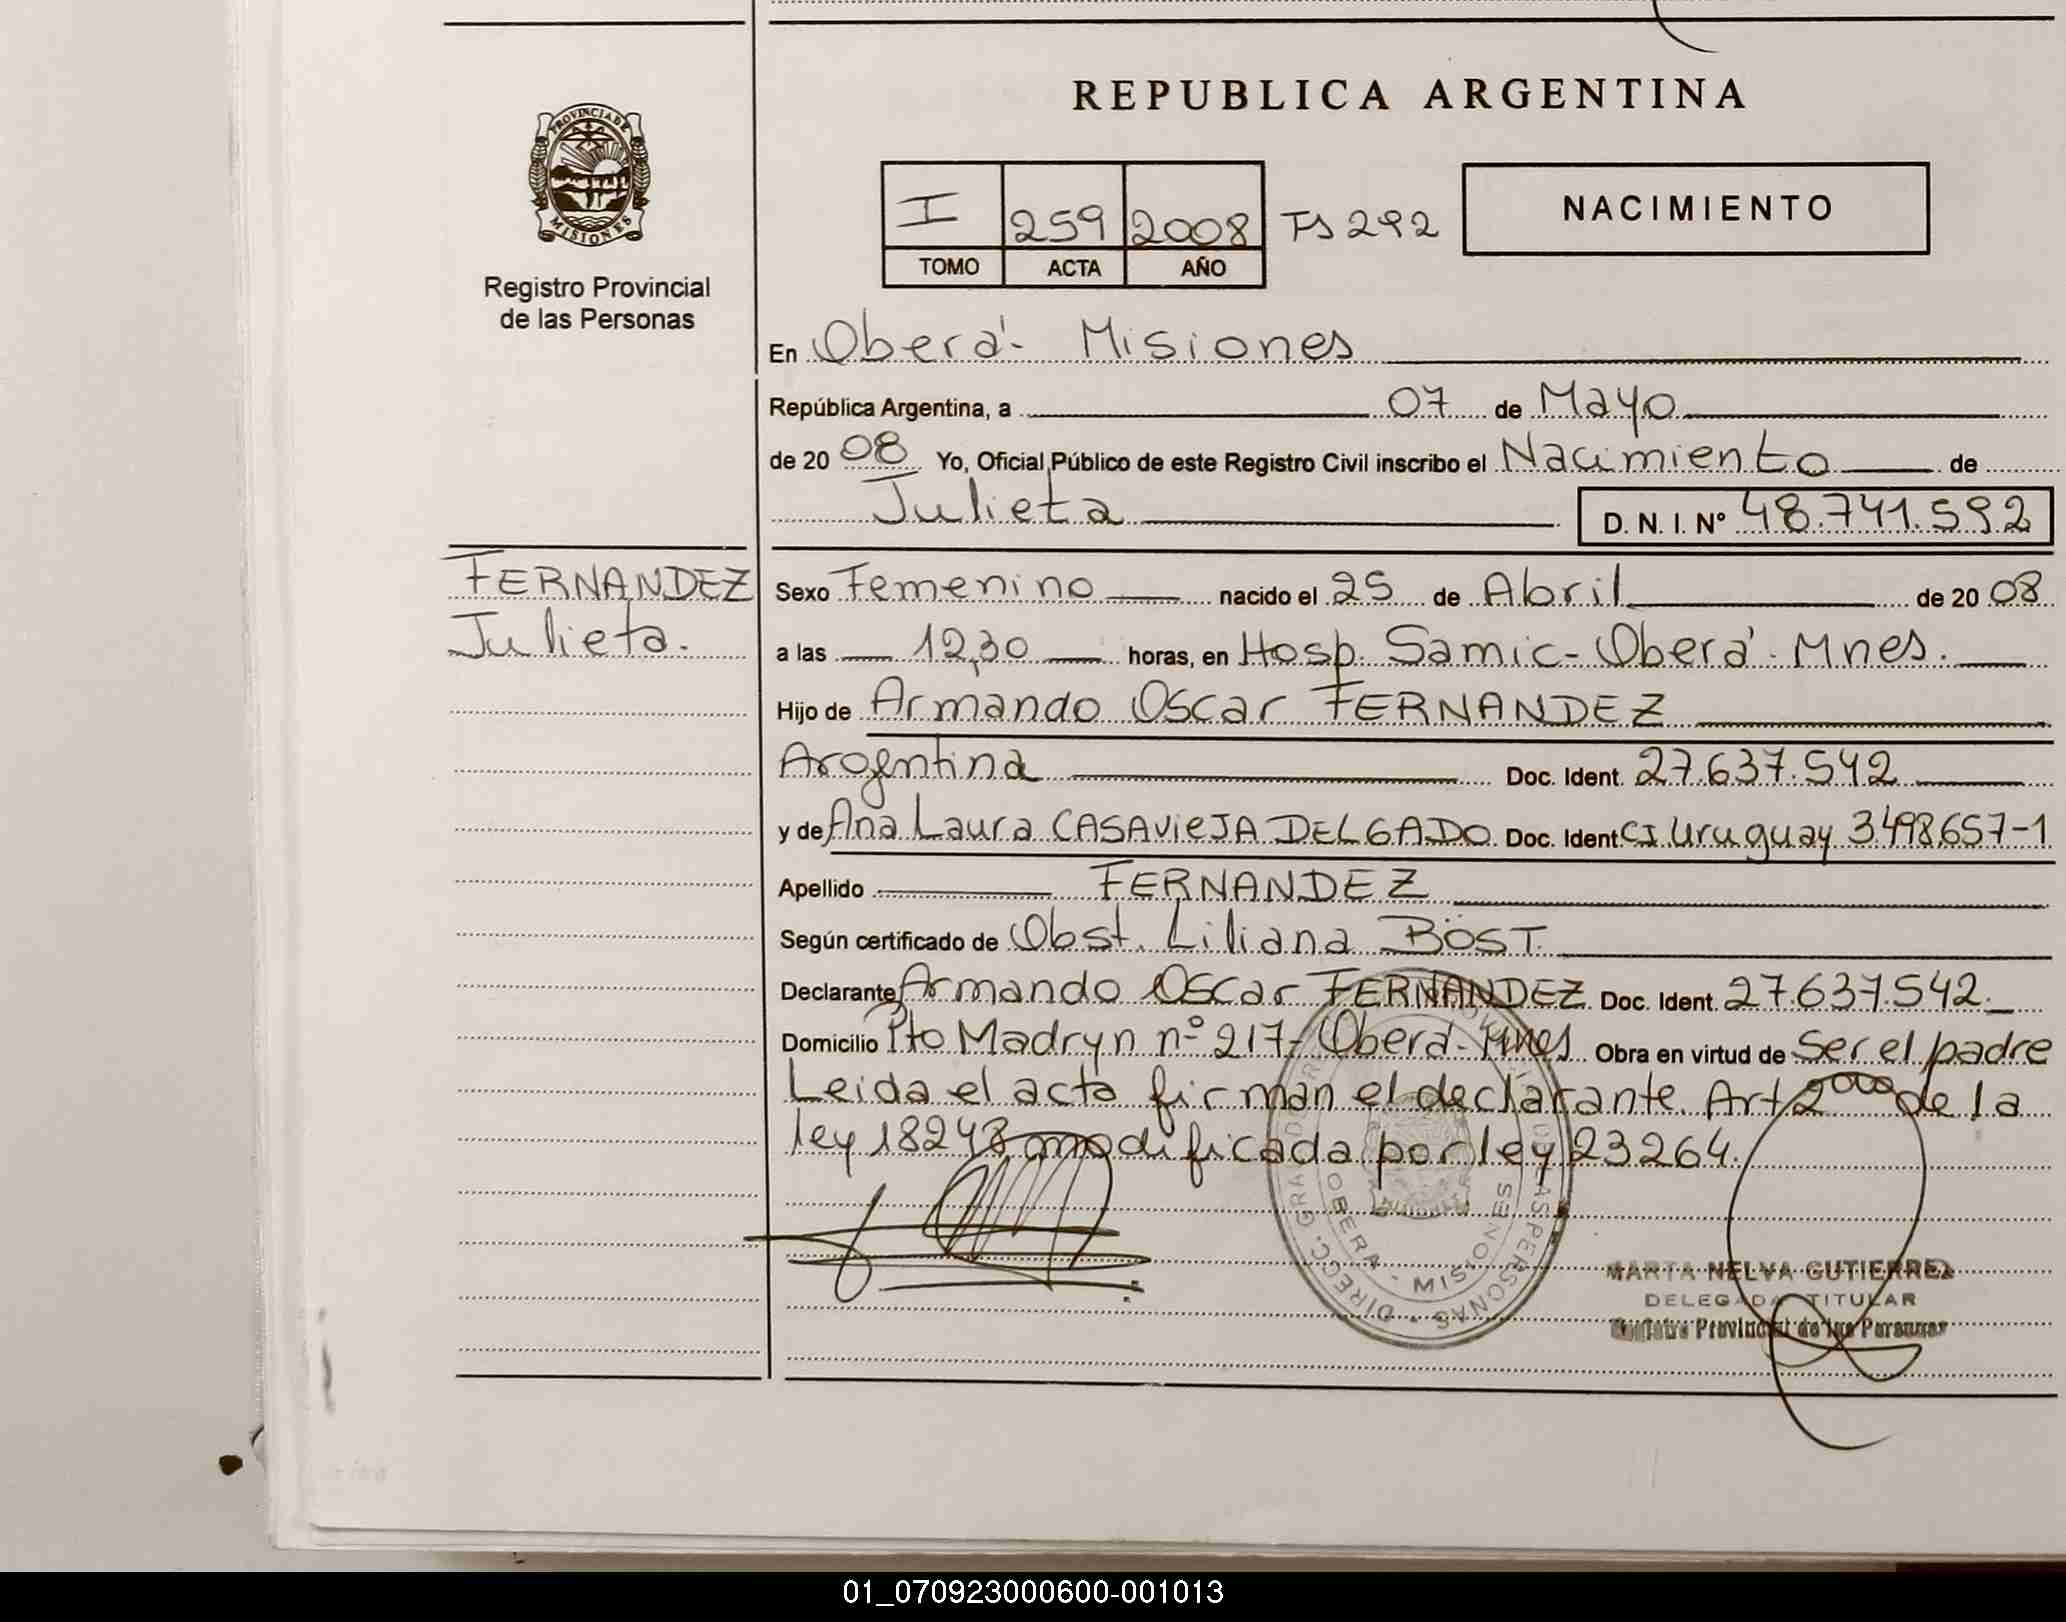 REPUBLICA ARGENTINA
PROVINCIA DE
MISIONES
Registro Provincial
de las Personas
I 259 2008 Fs 292
TOMO ACTA AÑO
NACIMIENTO
En Oberá - Misiones
República Argentina, a 07 de Mayo
de 20 08 Yo, Oficial Público de este Registro Civil inscribo el Nacimiento de
Julieta D. N. I. Nº 48.741.592
FERNANDEZ
Julieta.
Sexo Femenino nacido el 25 de Abril de 20 08
a las 12,30 horas, en Hosp. Samic - Oberá - Mnes.
Hijo de Armando Oscar FERNANDEZ
Argentina Doc. Ident. 27.637.542
y de Ana Laura CASAVIEJA DELGADO Doc. Ident. CI. Uruguay 3498657-1
Apellido FERNANDEZ
Según certificado de Obst. Liliana BÖST.
Declarante Armando Oscar FERNANDEZ Doc. Ident. 27.637.542.
Domicilio Pto Madryn nº 217 - Oberá - Mnes Obra en virtud de Ser el padre
Leida el acta firman el declarante. Art 2º de la
ley 18248 modificada por ley 23264.
OBERA - MISIONES
DE LAS PERSONAS - DIRECC. GRAL.
MARTA NELVA GUTIERREZ
DELEGADA TITULAR
Registro Provincial de las Personas
01_070923000600-001013